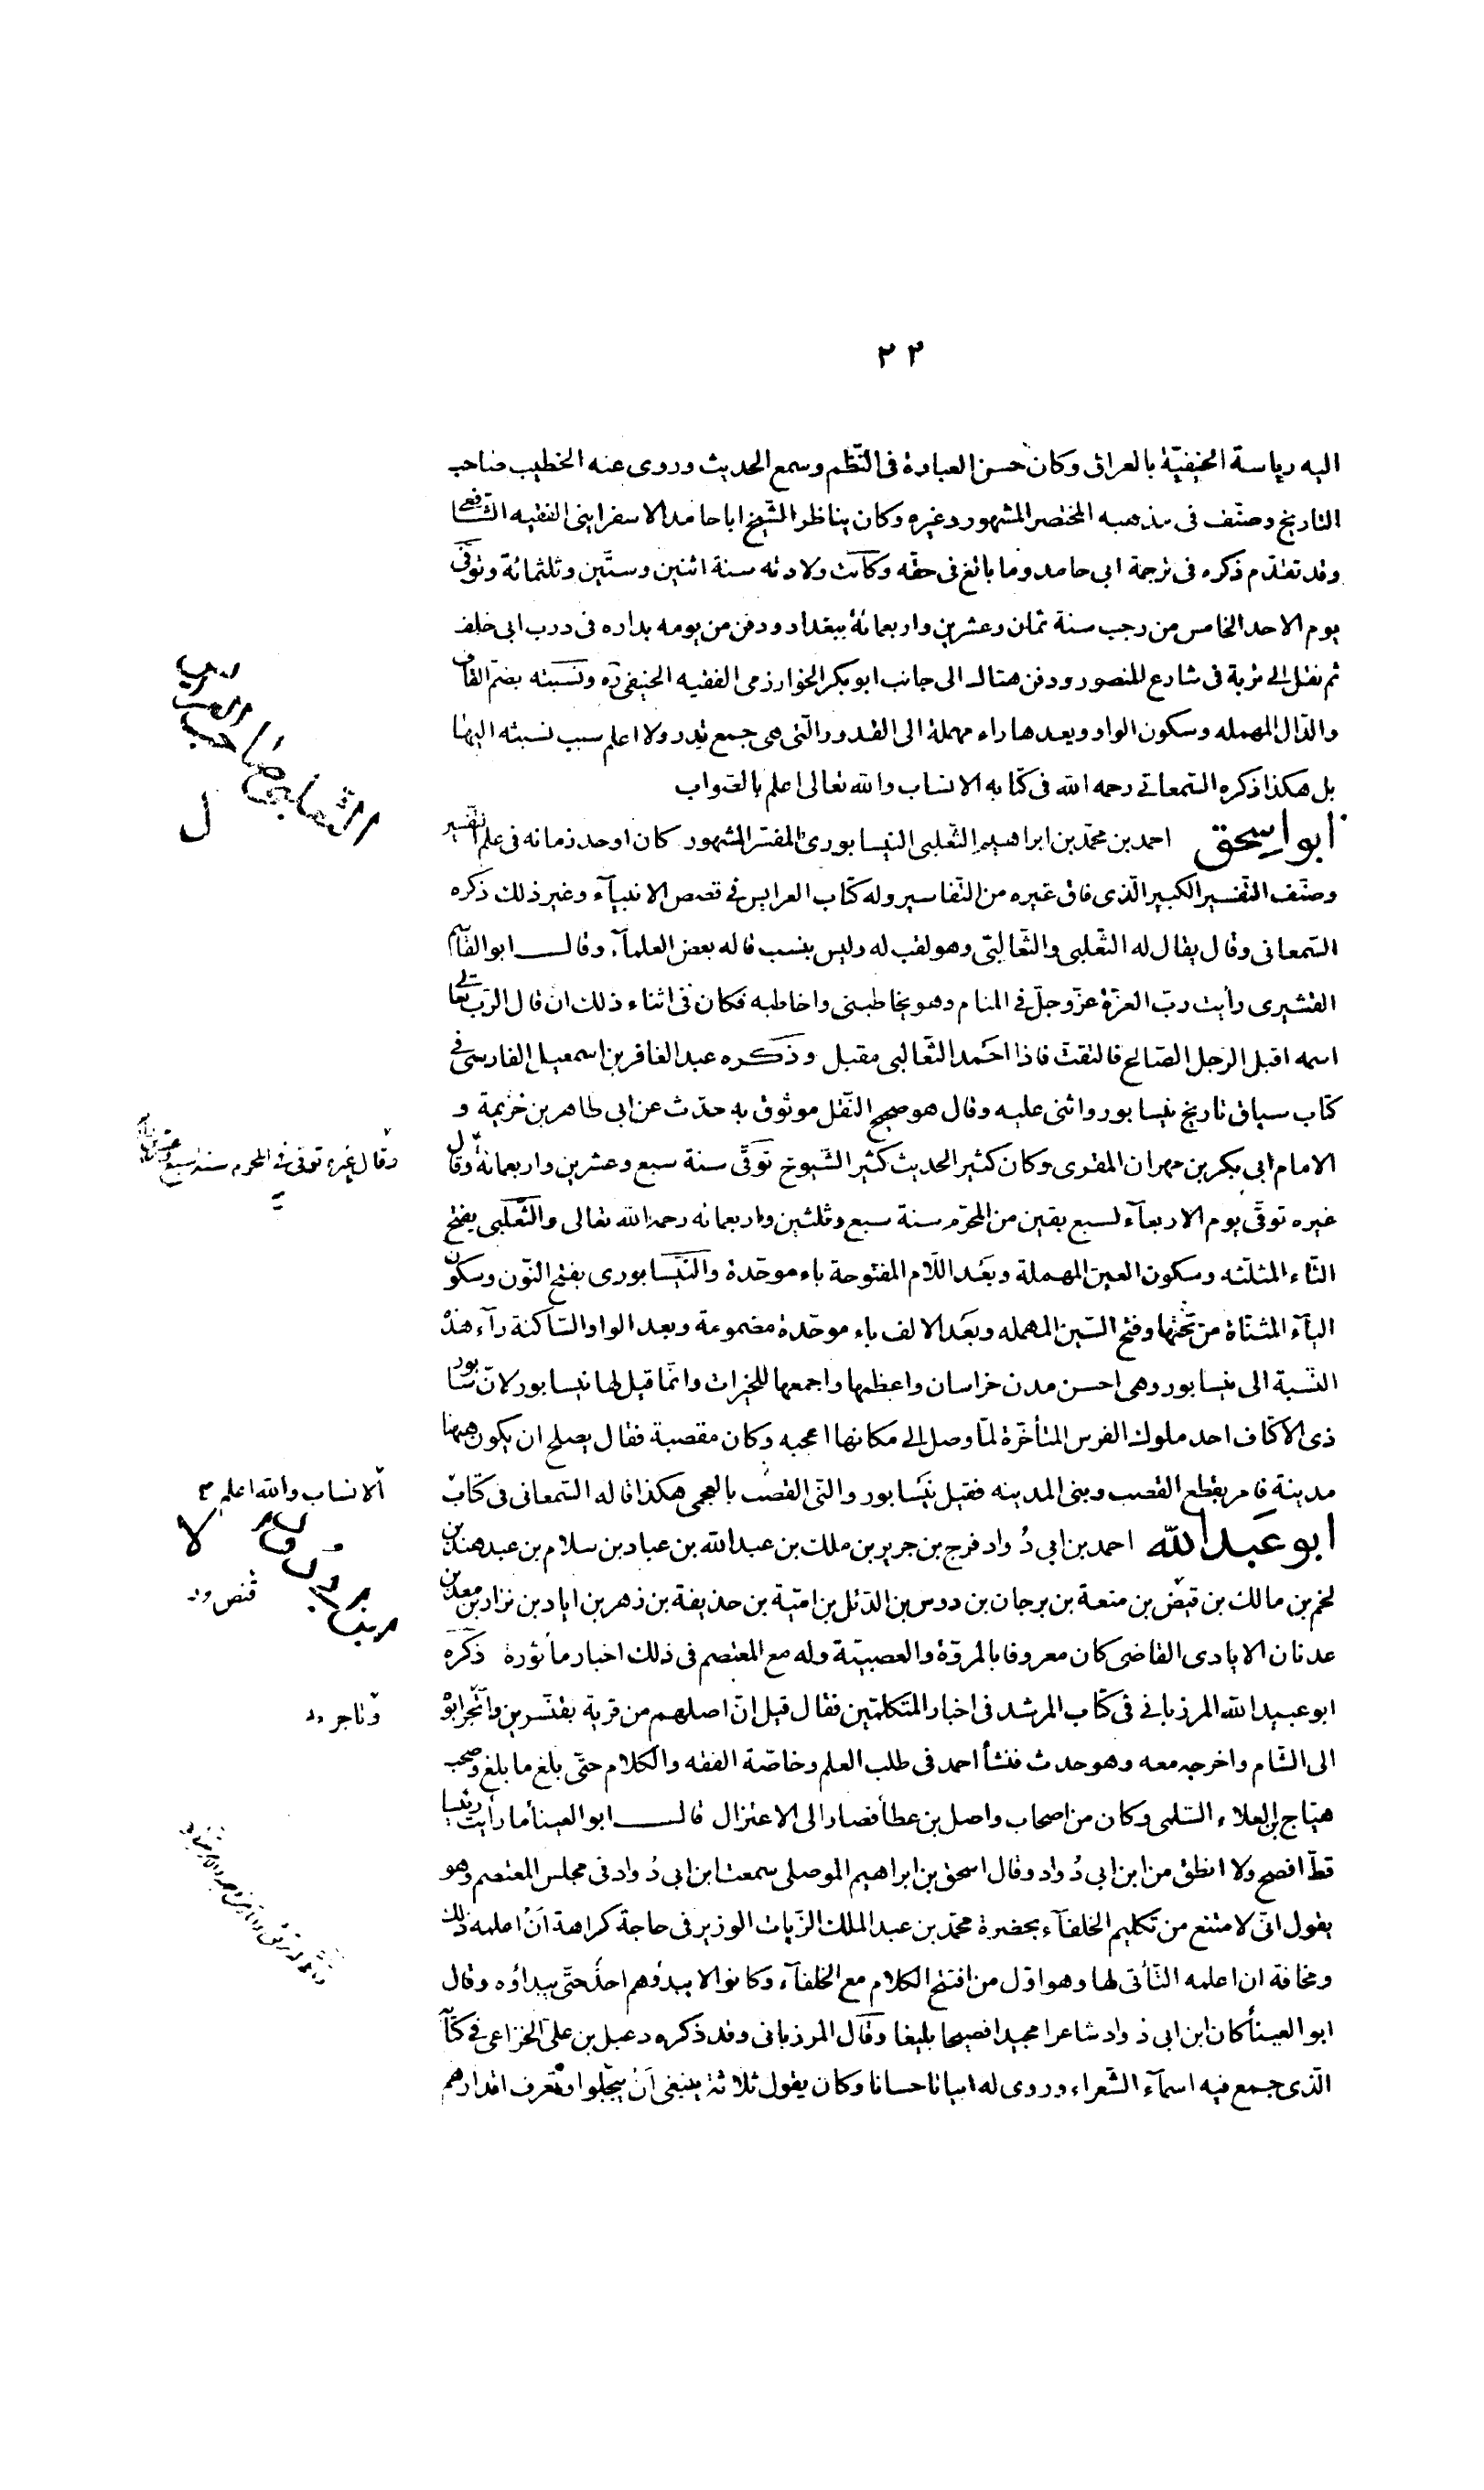 ٢٣
اليه رياسة الحنفيّة بالعراق وكان حسن العبادة فى النّظم وسمع الحديث وروى عنه الخطيب صاحب
التاريخ وصنّف فى مذهبه المختصر المشهور وغيره وكان يناظر الشّيخ ابا حامد الاسفراينى الفقيه الشّافعى
وقد تقدّم ذكره فى ترجمة ابى حامد وما بالغ فى حقّه وكانت ولادته سنة اثنين وستّين وثلثمائة وتوفّى
يوم الاحد الخامس من رجب سنة ثمان وعشرين واربعمائة ببغداد ودفن من يومه بداره فى درب ابى خلف
ثم نقل الى تربة فى شارع المنصور ودفن هناك الى جانب ابو بكر الخوارزمى الفقيه الحنيفى ره ونسبته بضمّ القاف
والدّال المهمله وسكون الواو وبعدها راء مهملة الى القدور الّتى هى جمع قدر ولا اعلم سبب نسبته اليها
بل هكذا ذكره السّمعانى رحمه الله فى كتابه الانساب والله تعالى اعلم بالصّواب
ابو اسحق احمد بن محمّد بن ابراهيم الثّعلبى النيسابورىّ المفسّر المشهور كان اوحد زمانه فى علم التّفسير
وصنّف التّفسير الكبير الّذى فاق غيره من التّفاسير وله كتاب العرايس فى قصص الانبيآء وغير ذلك ذكره
السّمعانى وقال يقال له الثّعلبى والثّعالبىّ وهو لقب له وليس بنسب قاله بعض العلمآء وقال ابو القاسم
القشيرى رأيت ربّ العزّة عزّ وجلّ فى المنام وهو يخاطبنى واخاطبه فكان فى اثناء ذلك ان قال الرّب تعالى
اسمه اقبل الرّجل الصّالح فالتفتّ فاذا احمد الثّعالبى مقبل وذكره عبد الغافر بن اسمعيل الفارسى فى
كتاب سياق تاريخ نيسابور واثنى عليه وقال هو صحيح النّقل موثوق به حدّث عن ابى طاهر بن خزيمة و
الامام ابى بكر بن مهران المقرى وكان كثير الحديث كثير الشّيوخ توفّى سنة سبع وعشرين واربعمائة وقال
غيره توفّى يوم الاربعآء لسبع بقين من المحرّم سنة سبع وثلثين واربعمائه رحمه الله تعالى والثّعلبى بفتح
الثّاء المثلّثه وسكون العين المهملة وبعد اللّام المفتوحة باء موحّدة والنّيسابورى بفتح النّون وسكون
اليآء المثنّاة من تحتها وفتح السّين المهمله وبعد الالف باء موحّدة مضمومة وبعد الواو السّاكنة رآء هذه
النّسبة الى نيسابور وهى احسن مدن خراسان واعظمها واجمعها للخيرات وانّما قيل لها نيسابور لانّ سابور
ذى الاكتاف احد ملوك الفرس المتأخّرة لمّا وصل الى مكانها اعجبه وكان مقصبة فقال يصلح ان يكون هيهنا
مدينة فامر بقطع القصب وبنى المدينه فقيل نيسابور والنى القصب بالعجمى هكذا قاله السّمعانى فى كتاب
ابو عبد الله احمد بن ابى دُواد فرج بن جرير بن ملك بن عبد الله بن عباد بن سلام بن عبد هند بن
لخم بن مالك بن قيض بن منعة بن برجان بن دوس بن الدّئل بن اميّة بن حذيفة بن زهر بن اياد بن نزار بن معد بن
عدنان الايادى القاضى كان معروفا بالمروّة والعصبيّة وله مع المعتصم فى ذلك اخبار مأثورة ذكره
ابو عبيد الله المرزبانى فى كتاب المرشد فى اخبار المتكلّمين فقال قيل انّ اصلهم من قرية بقنّسرين واتّجر ابوه
الى الشّام واخرجه معه وهو حدث فنشأ احمد فى طلب العلم وخاصّة الفقه والكلام حتّى بلغ ما بلغ وصحب
هيّاج بن العلاء السّلمى وكان من اصحاب واصل بن عطآ فصار الى الاعتزال قال ابو العينآ ما رأيت رئيسا
قطّ افصح ولا انطق من ابن ابى دُواد وقال اسحق بن ابراهيم الموصلى سمعت ابن ابى دُواد فى مجلس المعتصم وهو
يقول انّى لامتنع من تكليم الخلفآء بحضرة محمّد بن عبد الملك الزّيات الوزير فى حاجة كراهة اَنْ اعلمه ذلك
ومخافة ان اعلمه التّأتى لها وهو اوّل من افتتح الكلام مع الخلفآء وكانوا لا يبدؤهم احدٌ حتّى يبداؤه وقال
ابو العينأ كان ابن ابى دواد شاعرا مجيدا فصيحا بليغا وقال المرزبانى وقد ذكره دعبل بن علىّ الخزاعى فى كتابه
الّذى جمع فيه اسمآء الشّعراء وروى له ابياتا حسانا وكان يقول ثلاثة ينبغى اَنْ يبجّلوا وتعرف اقدارهم
الثعلبى صاحب العرايس
ل
وقال غيره توفى فى المحرم سنة سبع وعشرين
الانساب والله اعلم م
لا
قنص ود
وتاجر ود